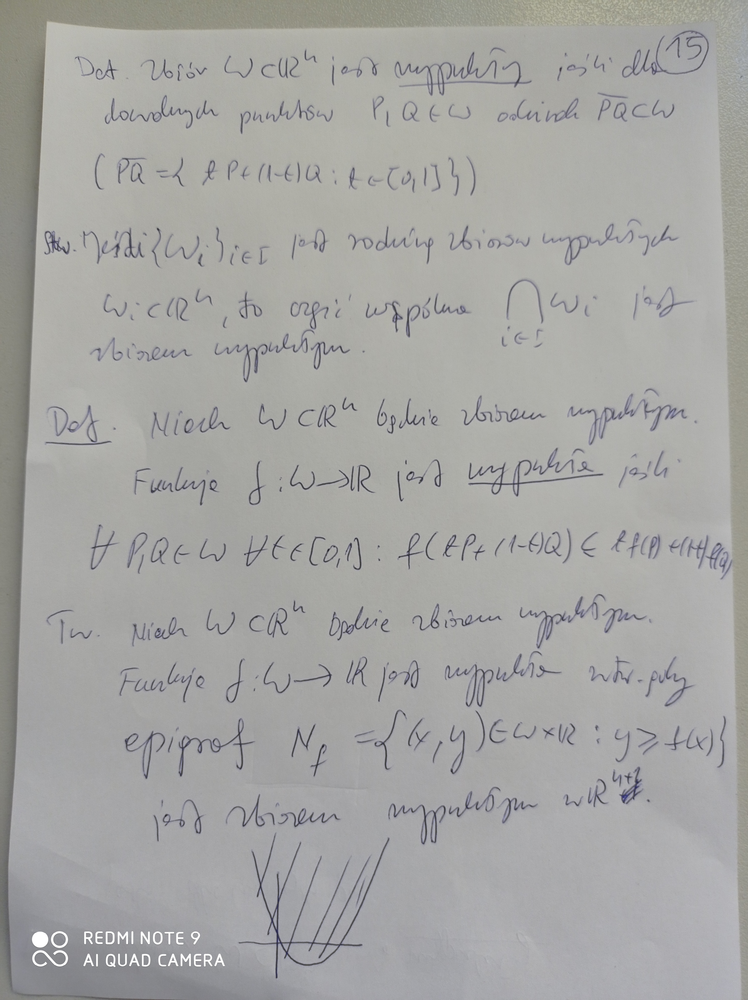 15
Def. Zbiór W⊂ℝⁿ jest wypukły jeśli dla
dowolnych punktów P, Q ∈ W odcinek P̅Q̅ ⊂ W
( P̅Q̅ = { tP+(1-t)Q : t ∈ [0,1] } )
Stw. Jeśli {Wi}i∈I jest rodziną zbiorów wypukłych
Wi⊂ℝⁿ, to część wspólna ⋂ Wi jest
i∈I
zbiorem wypukłym.
Def. Niech W⊂ℝⁿ będzie zbiorem wypukłym.
Funkcja f: W→ℝ jest wypukła jeśli
∀ P,Q∈W ∀ t∈[0,1] : f(tP+(1-t)Q) ≤ tf(P)+(1-t)f(Q)
Tw. Niech W⊂ℝⁿ będzie zbiorem wypukłym.
Funkcja f: W→ℝ jest wypukła wtw. gdy
epigraf Nf = {(x,y)∈W×ℝ : y ≥ f(x)}
jest zbiorem wypukłym w ℝ
REDMI NOTE 9
AI QUAD CAMERA